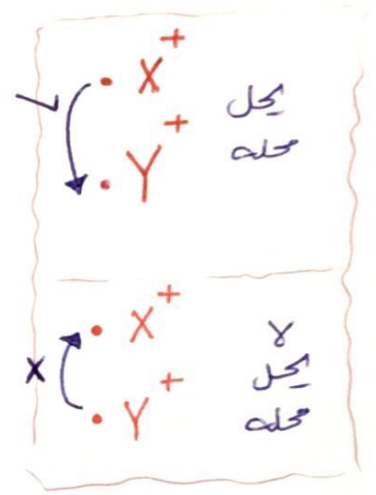 X⁺
Y⁺
يحل
محله
X⁺
Y⁺
لا
يحل
محله